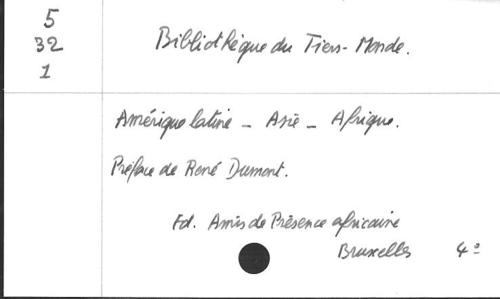 5
32
1
Bibliothèque du Tiers-Monde.
Amérique latine - Asie - Afrique.
Préface de René Dumont.
Ed. Amis de Présence africaine
Bruxelles 4º